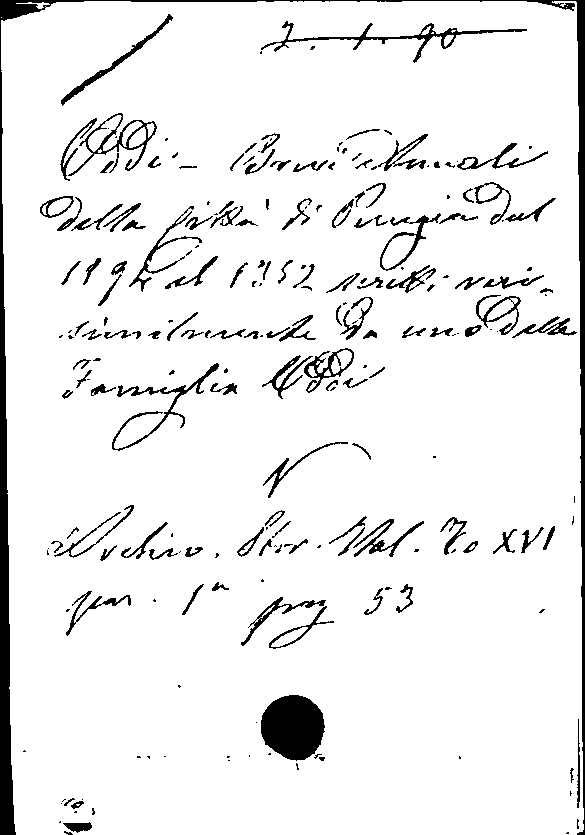 2. 1. 90
Oddi - Brevi Annali
della Città di Perugia dal
1194 al 1352 scritti veri-
similmente da uno della
Famiglia Oddi
V
Archiv. Stor. Ital. To XVI
par. 1ª pag 53